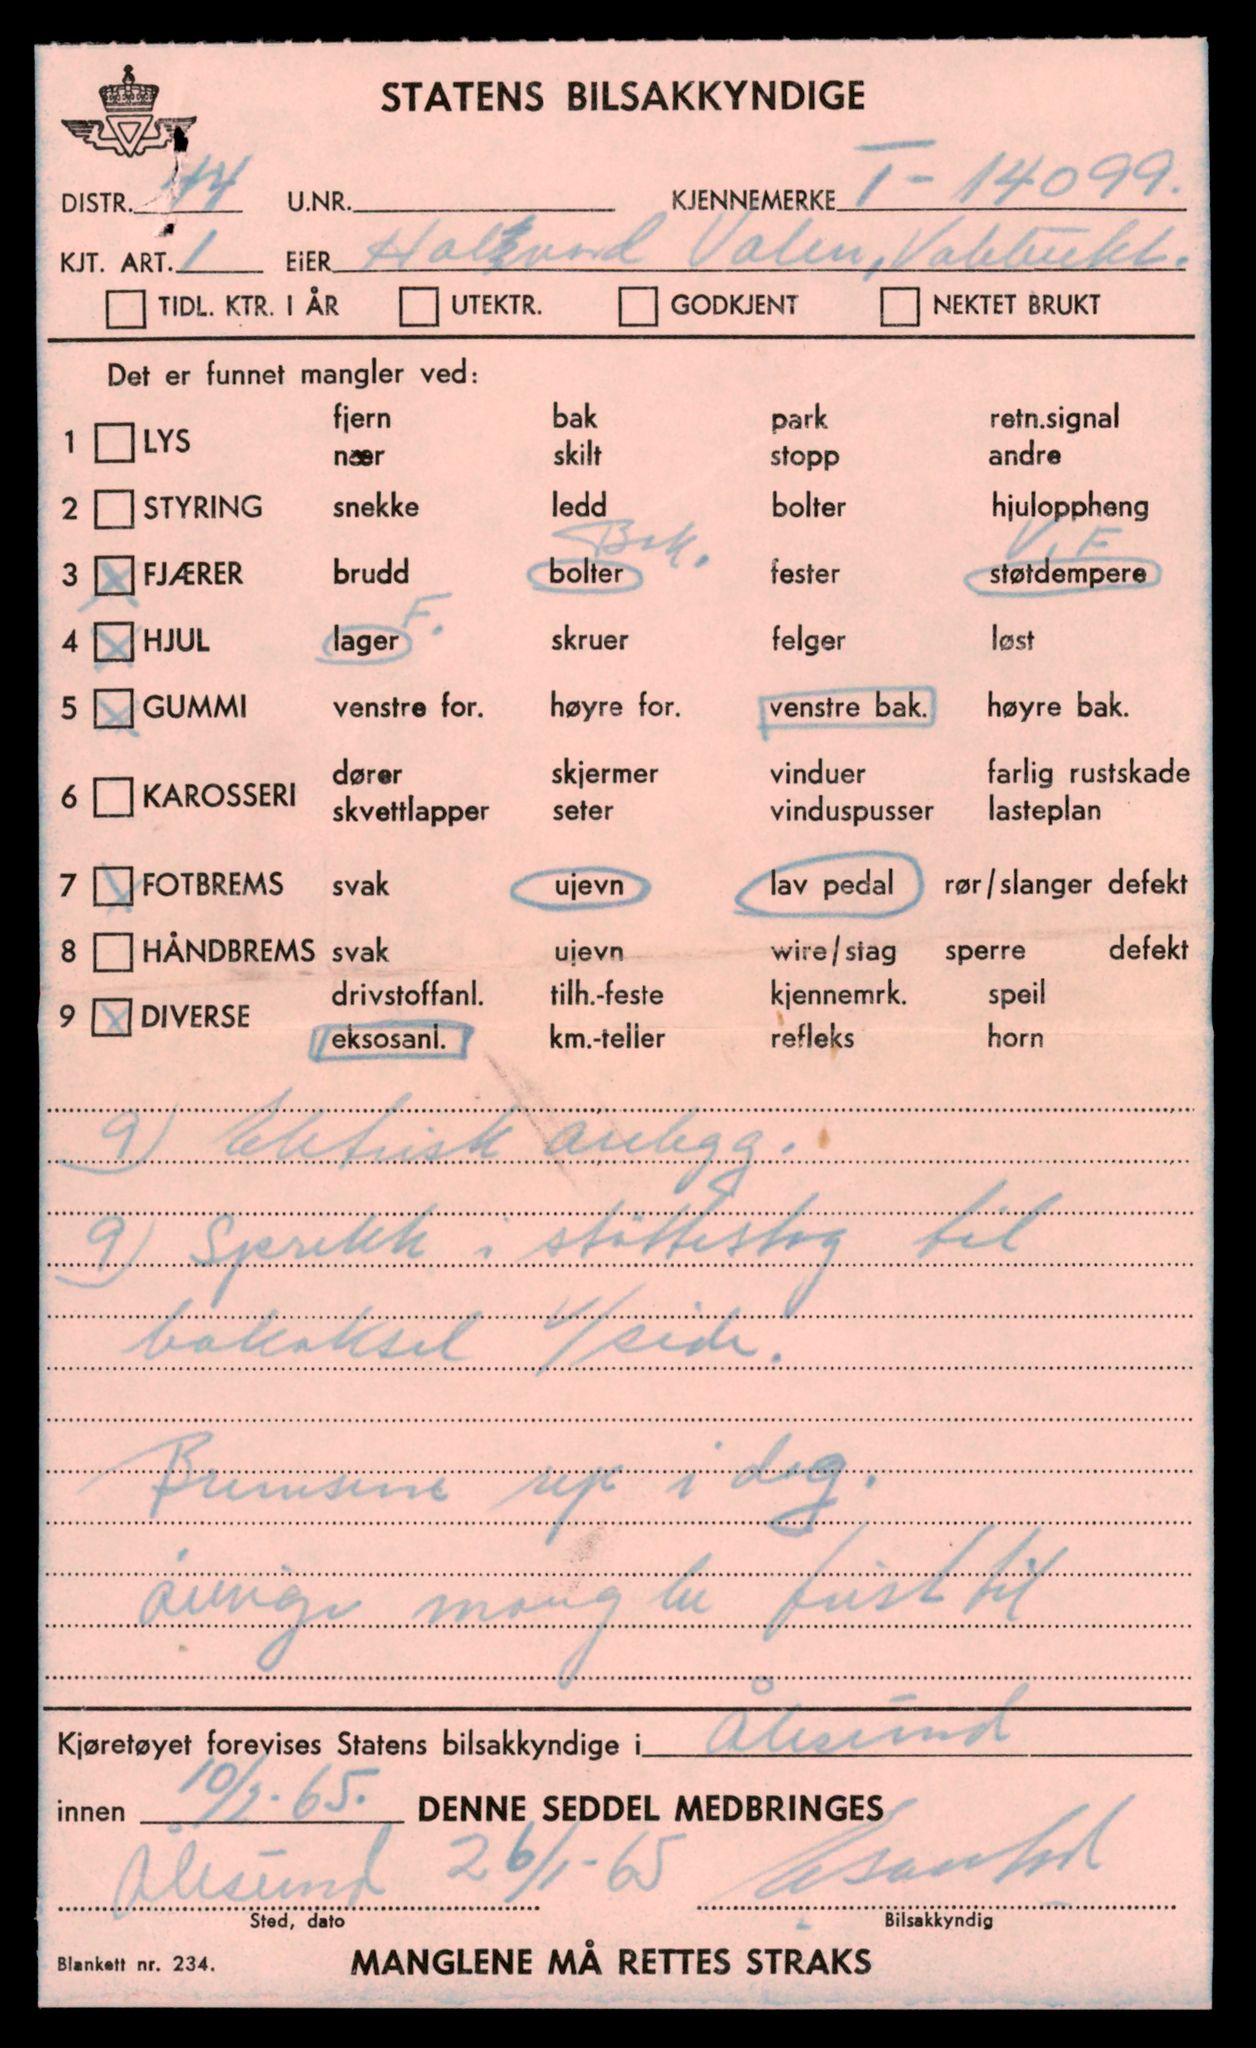 STATENS BILSAKKYNDIGE
DISTR. 14 U.NR. KJENNEMERKE T-14099.
KJT. ART. 1 EIER Hallvard Valen,
TIDL. KTR. I ÅR UTEKTR. GODKJENT NEKTET BRUKT
Det er funnet mangler ved:
fjern bak park retn.signal
1 LYS
nær skilt stopp andre
2 STYRING snekke ledd bolter hjuloppheng
Bak. V. F
3 FJÆRER brudd bolter fester støtdempere
F.
4 HJUL lager skruer felger løst
5 GUMMI venstre for. høyre for. venstre bak. høyre bak.
dører skjermer vinduer farlig rustskade
6 KAROSSERI
skvettlapper seter vinduspusser lasteplan
7 FOTBREMS svak ujevn lav pedal rør/slanger defekt
8 HÅNDBREMS svak ujevn wire/stag sperre defekt
drivstoffanl. tilh.-feste kjennemrk. speil
9 DIVERSE
eksosanl. km.-teller refleks horn
9) Elektrisk anlegg.
9) Sprekk i støttestag til
bakaksel V/side.
Bremsene rep i dag.
øvrige mangler frist til
Kjøretøyet forevises Statens bilsakkyndige i Ålesund
innen 10/2-65. DENNE SEDDEL MEDBRINGES
Ålesund 26/1-65
Sted, dato Bilsakkyndig
Blankett nr. 234. MANGLENE MÅ RETTES STRAKS